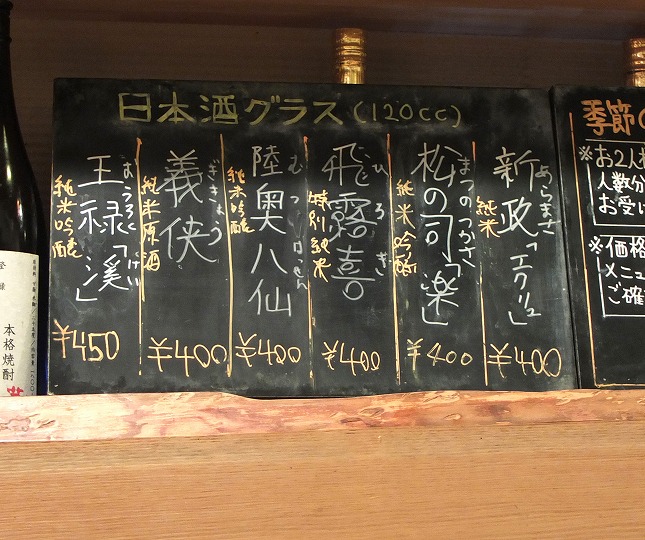 日本酒グラス(120cc)
新政「エクリュ」
あらまさ
純米
¥400
松の司「楽」
まつのつかさ
純米吟醸
¥400
飛露喜
ひろき
特別純米
¥400
陸奥八仙
むつはっせん
純米吟醸
¥400
義侠
ぎきょう
純米原酒
¥400
王禄「渓」
おうろく けい
純米吟醸
¥450
季節の
※お2人様
人数分
お受け
※価格
メニュ
ご確
本格焼酎